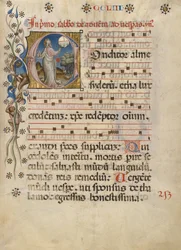 CCLIII
In primo sabbato de adventu ad vesperas
Conditor alme
syderum eterna lux
credentium xpe redemptor oium
exaudi preces supplicum Qui
condolens interitu mortis perire
seculum salvasti mundum languidum
donans reis remedium Vergente
mundi vespere uti sponsus de tha
lamo egressus honestissima
253